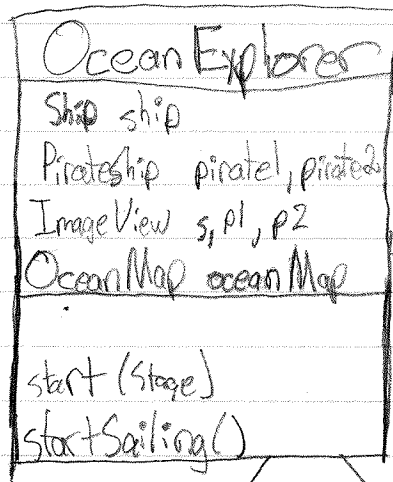 OceanExplorer
Ship ship
Pirateship pirate1, pirate2
ImageView s, p1, p2
OceanMap oceanMap
start (Stage)
startSailing()